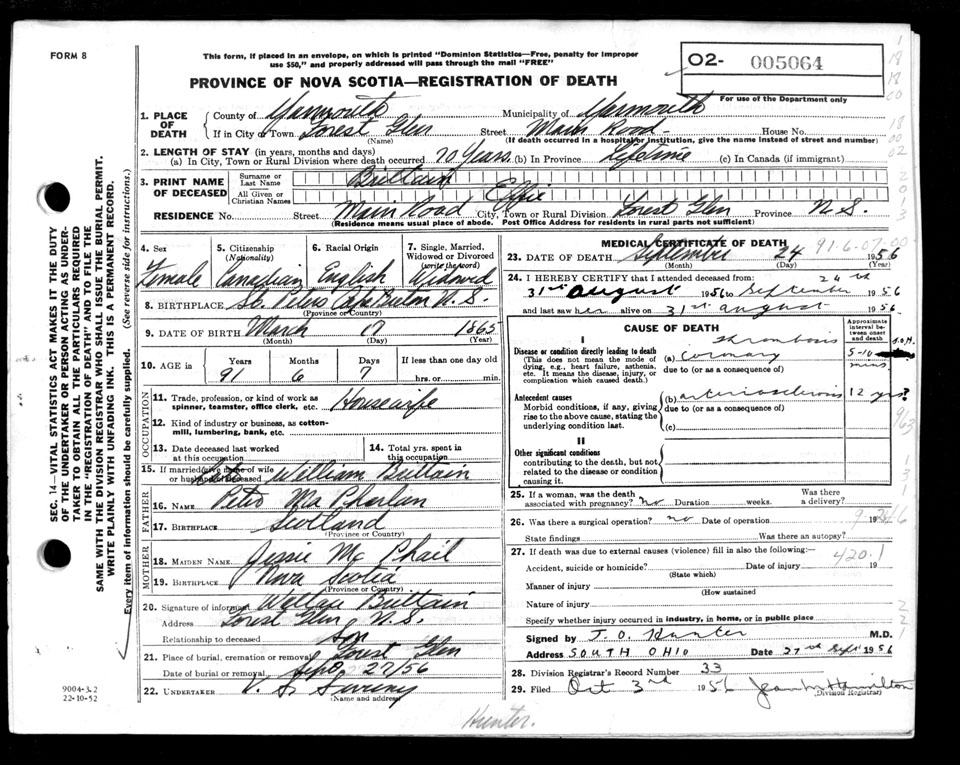 FORM 8
This form, if placed in an envelope, on which is printed "Dominion Statistics—Free, penalty for improper
use $50," and properly addressed will pass through the mail "FREE"
PROVINCE OF NOVA SCOTIA—REGISTRATION OF DEATH
02- 005064
For use of the Department only
1. PLACE OF DEATH
County of Yarmouth Municipality of Yarmouth
If in City or Town Forest Glen Street Main Road House No.
(Name) (If death occurred in a hospital or institution, give the name instead of street and number)
2. LENGTH OF STAY (in years, months and days)
(a) In City, Town or Rural Division where death occurred 70 Years (b) In Province Lifetime (c) In Canada (if immigrant)
3. PRINT NAME OF DECEASED
Surname or Last Name Brittain
All Given or Christian Names Effie
RESIDENCE No. Street Main Road City, Town or Rural Division Forest Glen Province N.S.
(Residence means usual place of abode. Post Office Address for residents in rural parts not sufficient)
4. Sex 5. Citizenship (Nationality) 6. Racial Origin 7. Single, Married, Widowed or Divorced (write the word)
Female Canadian English Widowed
8. BIRTHPLACE St. Peters Cape Breton N.S.
(Province or Country)
9. DATE OF BIRTH March 17 1865
(Month) (Day) (Year)
10. AGE in Years Months Days If less than one day old
91 6 7 hrs. or min.
OCCUPATION
11. Trade, profession, or kind of work as
spinner, teamster, office clerk, etc. Housewife
12. Kind of industry or business, as cotton-
mill, lumbering, bank, etc.
13. Date deceased last worked at this occupation 14. Total yrs. spent in this occupation
15. If married give name of wife
or husband of deceased William Brittain
FATHER
16. NAME Peter
17. BIRTHPLACE Scotland
(Province or Country)
MOTHER
18. MAIDEN NAME Jessie Mc Phail
19. BIRTHPLACE Nova Scotia
(Province or Country)
20. Signature of informant Brittain
Address Forest Glen, N.S.
Relationship to deceased son
21. Place of burial, cremation or removal Forest Glen
Date of burial or removal Sept 27/56
22. UNDERTAKER V. S. Sweeny
(Name and address)
MEDICAL CERTIFICATE OF DEATH
91-6-07-00
23. DATE OF DEATH September 24 1956
(Month) (Day) (Year)
24. I HEREBY CERTIFY that I attended deceased from: 24th
31st August 1956 to September 1956
and last saw her alive on 31st August 1956.
CAUSE OF DEATH
Approximate interval between onset and death
I
Disease or condition directly leading to death
(This does not mean the mode of
dying, e.g., heart failure, asthenia,
etc. It means the disease, injury, or
complication which caused death.)
(a) coronary thrombosis 5-10 mins J.O.H.
due to (or as a consequence of)
Antecedent causes
Morbid conditions, if any, giving
rise to the above cause, stating the
underlying condition last.
(b) arteriosclerosis 12 yrs?
due to (or as a consequence of)
(c)
II
Other significant conditions
contributing to the death, but not
related to the disease or condition
causing it.
25. If a woman, was the death
associated with pregnancy? no Duration weeks. Was there a delivery?
26. Was there a surgical operation? no Date of operation 19
State findings Was there an autopsy?
27. If death was due to external causes (violence) fill in also the following:— 420.1
Accident, suicide or homicide? Date of injury 19
(State which)
Manner of injury
(How sustained
Nature of injury
Specify whether injury occurred in industry, in home, or in public place
Signed by J. O. Hunter M.D.
Address SOUTH OHIO Date 27th Sept 1956
28. Division Registrar's Record Number 33
29. Filed Oct 3rd 1956 Jean M Hamilton
(Division Registrar)
SEC. 14—VITAL STATISTICS ACT MAKES IT THE DUTY
OF THE UNDERTAKER OR PERSON ACTING AS UNDER-
TAKER TO OBTAIN ALL THE PARTICULARS REQUIRED
IN THE "REGISTRATION OF DEATH" AND TO FILE THE
SAME WITH THE DIVISION REGISTRAR WHO SHALL ISSUE THE BURIAL PERMIT.
WRITE PLAINLY WITH UNFADING INK. THIS IS A PERMANENT RECORD.
Every item of information should be carefully supplied. (See reverse side for instructions.)
9004-3.2
22-10-52
Hunter.